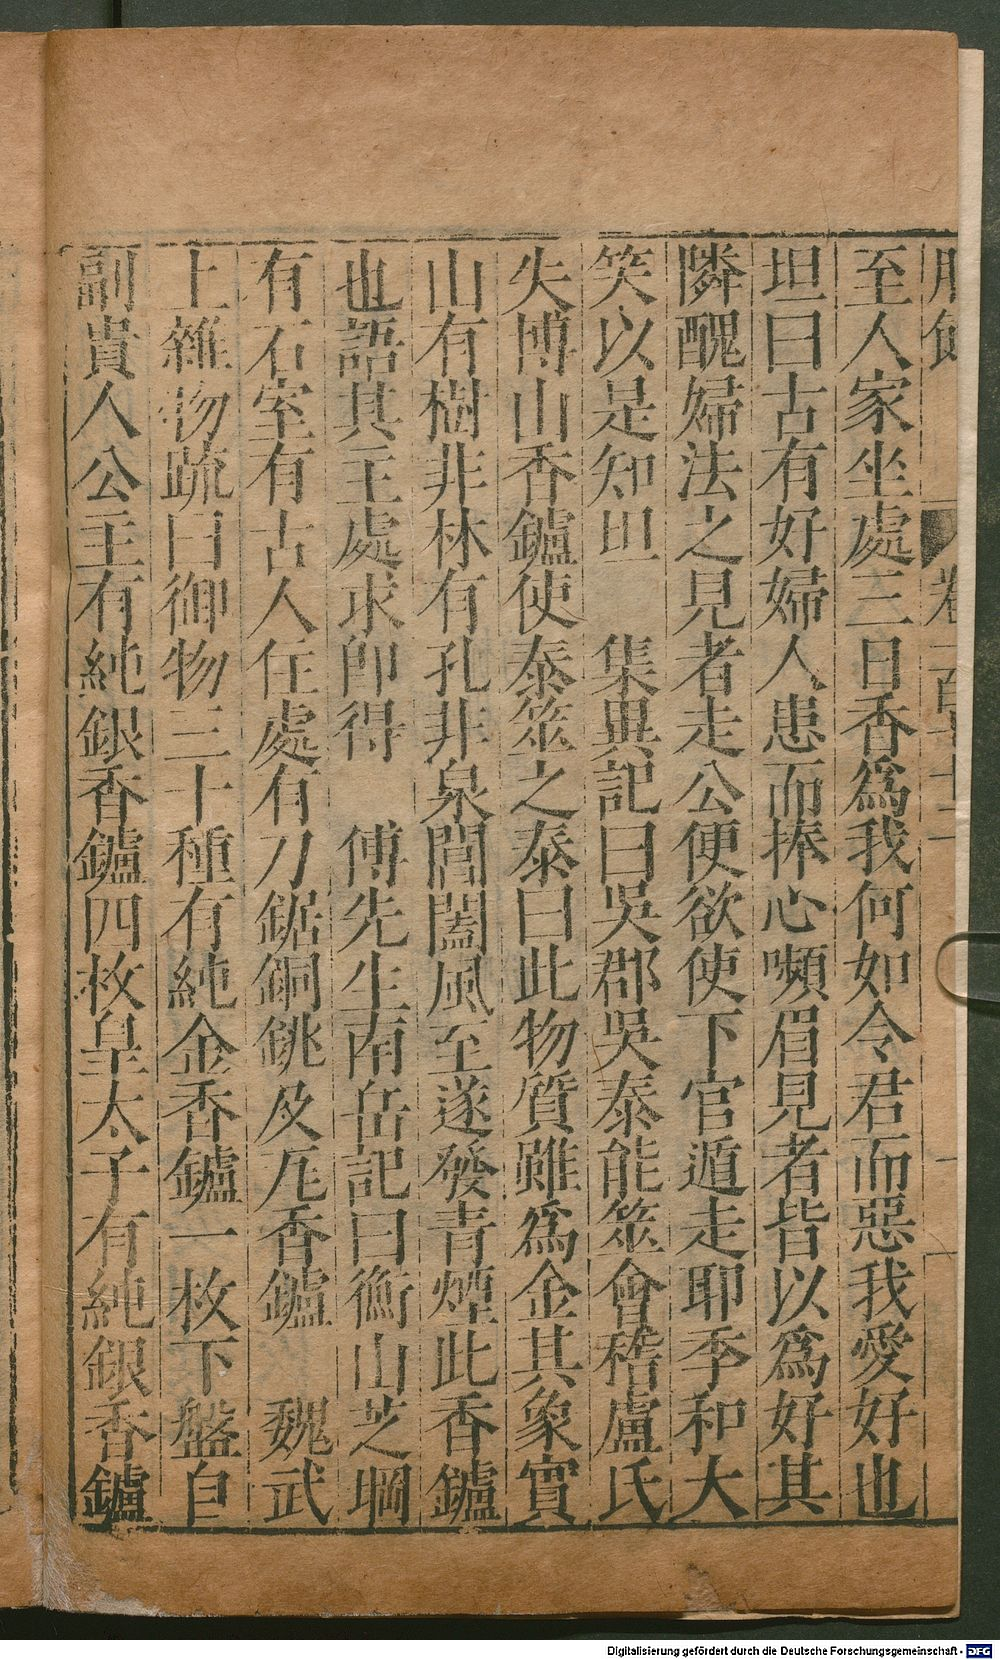 服飾 卷一百十二
至人家坐處三日香爲我何如令君而惡我愛好也
坦曰古有好婦人患而捧心嚬眉見者皆以爲好其
隣醜婦法之見者走公便欲使下官遁走耶季和大
笑以是知坦 集異記曰吳郡吳泰能筮會稽盧氏
失博山香鑪使泰筮之泰曰此物質雖爲金其象實
山有樹非林有孔非泉閶闔風至遂發青煙此香鑪
也語其主處求卽得 傅先生南岳記曰衡山芝堈
有石室有古人住處有刀鋸銅銚及瓦香鑪 魏武
上雜物疏曰御物三十種有純金香鑪一枚下盤自
副貴人公主有純銀香鑪四枚皇太子有純銀香鑪
Digitalisierung gefördert durch die Deutsche Forschungsgemeinschaft - DFG